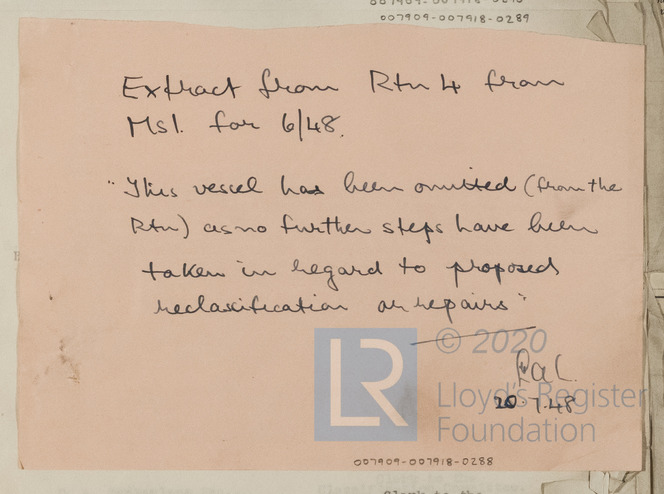 007909-007918-0289
Extract from Rtn 4 from
Msl. for 6/48.
"This vessel has been omitted (from the
Rtn) as no further steps have been
taken in regard to proposed
reclassification or repairs"
© 2020
LR
Lloyd's Register
Foundation
20.7.48
007909-007918-0288